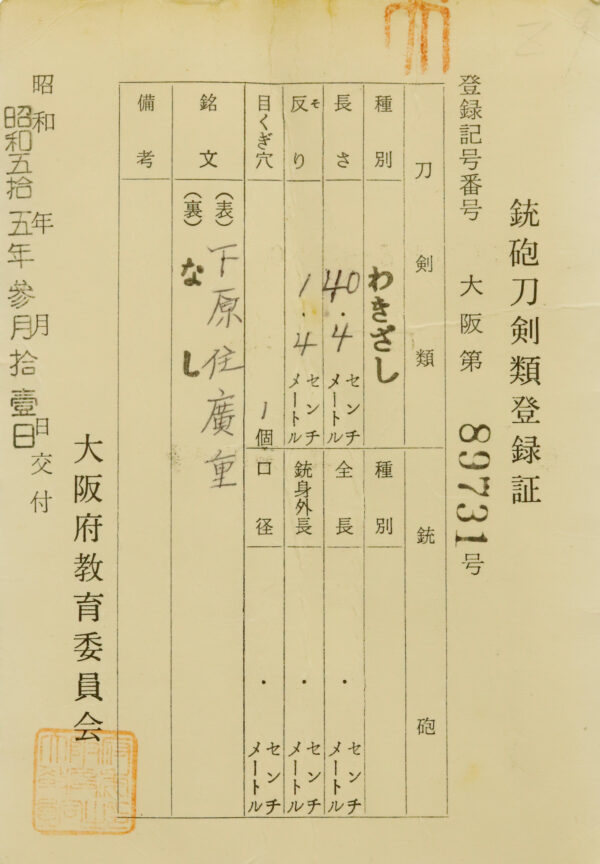 銃砲刀剣類登録証
登録記号番号 大阪第 89731 号
刀剣類 銃砲
種別 わきざし 種別
長さ 40.4 センチメートル 全長 ・ センチメートル
反り そ 1.4 センチメートル 銃身外長 ・ センチメートル
目くぎ穴 1個 口径 ・ センチメートル
銘文 (表) 下原住廣重
(裏) なし
備考
昭和 年 月 日交付
昭和五拾五年参月拾壹日
大阪府教育委員会